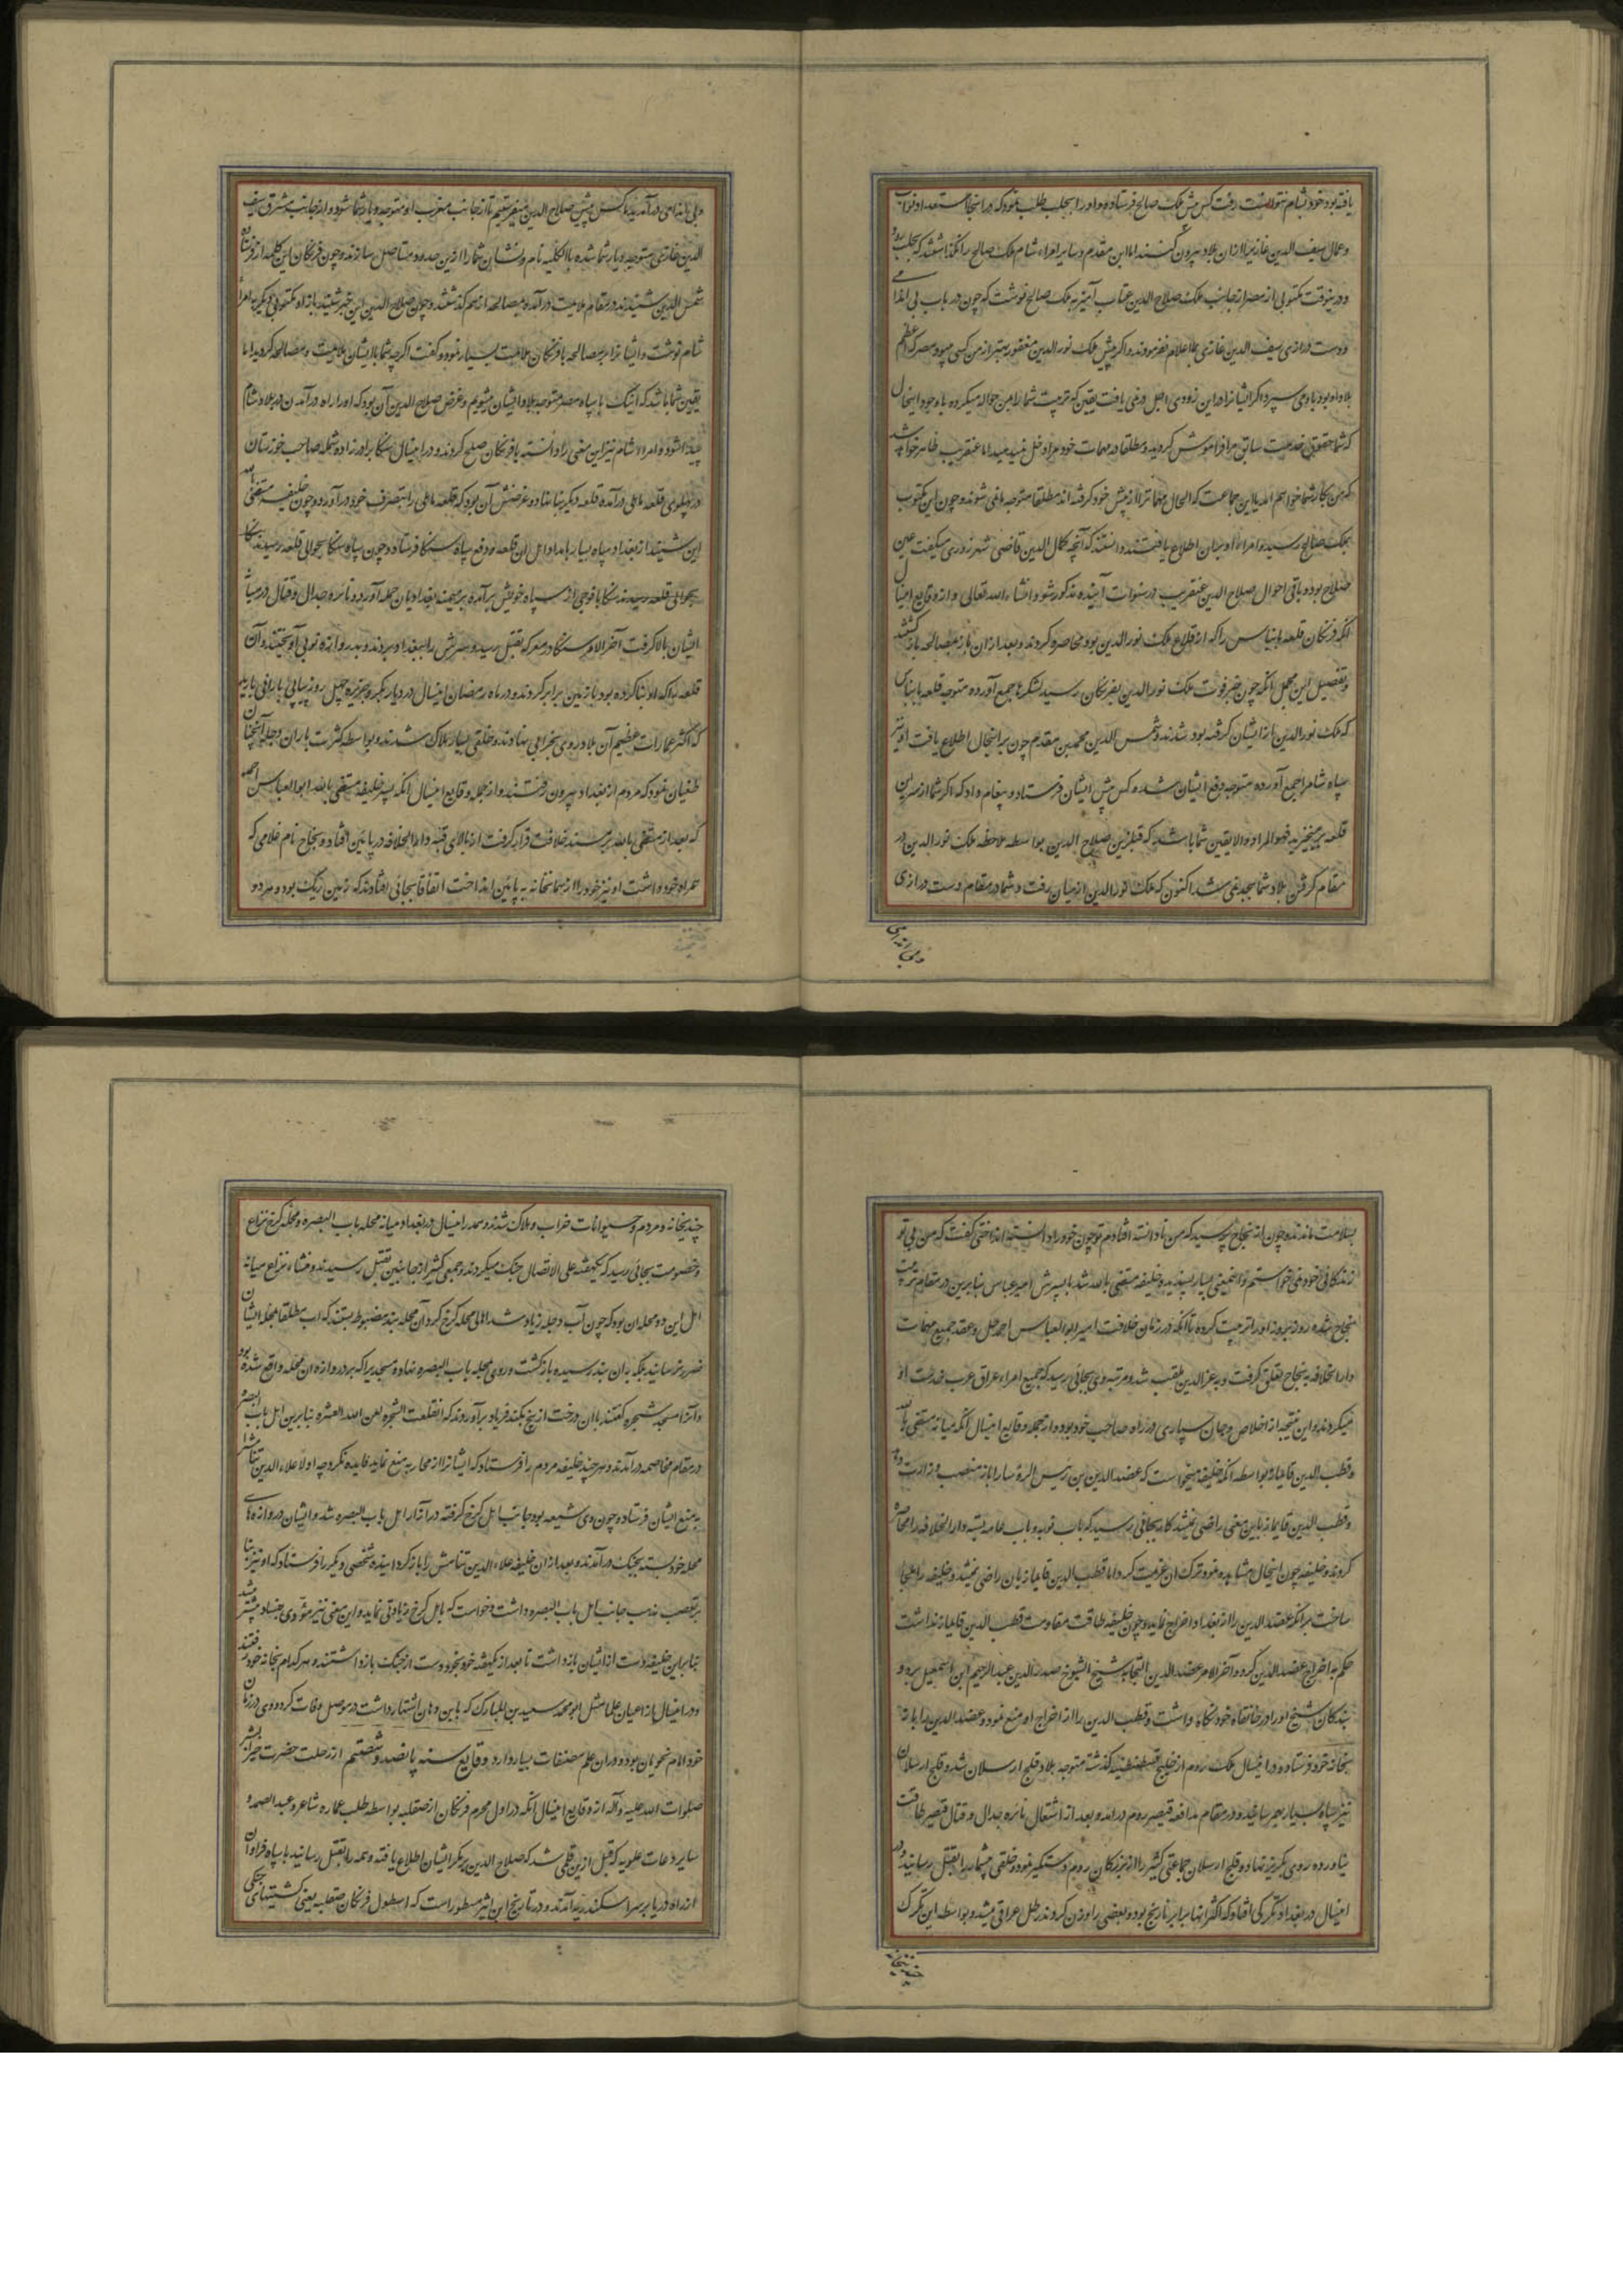 یافته بود خود بشام نتوانست رفت کس پیش ملک صالح فرستاده و او را بحلب طلب نمود که در اینجا مستعد او نواب
وعمال سیف الدین غازی را ازان بلاد بیرون کنند اما ابن مقدم و سایر امراء شام ملک صالح را نگذاشتند که بحلب رود
ودرینوقت مکتوبی از مصر از جانب ملک صلاح الدین عتاب آمیز به ملک صالح نوشت که چون در باب بی اندامی
ودست درازی سیف الدین غازی بما اعلام نفرمودند و اگر پیش ملک نور الدین مغفور معتبر از من کسی میبود مصر که اعظم
بلاد او بود باو می سپرد و اگر ایشانرا در این زودی اجل در نمی یافت یقین که تربیت شما را بمن حواله میکرد و با وجود اینحال
که شما حقوق خدمت سابق مرا فراموش کردید و مطلقا در مهمات خود مرا دخل نمیدهید اما عنقریب ظاهر خواهد شد
که من بکار شما خواهم آمد یا این جماعت که الحال مهمات را از پیش خود گرفته اند مطلقا متوجه ما نمی شوند و چون این مکتوب
بملک صالح رسید و امراء او بران اطلاع یافتند دانستند که آنچه کمال الدین قاضی شهرزوری میگفت عین
صلاح بود و باقی احوال صلاح الدین عنقریب در سنوات آینده مذکور شود انشاء الله تعالی و از وقایع امسال
آنکه فرنگان قلعه بانیاس را که از قلاع ملک نور الدین بود محاصره کردند و بعد ازان باز بمصالحه بازگشتند
وتفصیل این مجمل آنکه چون خبر فوت ملک نور الدین بفرنگان رسید لشکرها جمع آورده متوجه قلعه بانیاس
که ملک نور الدین از ایشان گرفته بود شدند و شمس الدین محمد بن مقدم چون بر اینحال اطلاع یافت او نیز
سپاه شام را جمع آورده متوجه دفع ایشان شد و کس پیش ایشان فرستاد و پیغام داد که اگر شما از سر این
قلعه برمیخیزید فهو المراد والا یقین شما باشد که قبل ازین صلاح الدین بواسطه ملاحظه ملک نور الدین در
مقام گرفتن بلاد شما بجد نمی شد اکنون که ملک نور الدین از میان رفت و شما در مقام دست درازی
وبی اندامی
وبی اندامی درآمدید ما کس پیش صلاح الدین میفرستیم تا از جانب مغرب او متوجه دیار شما شود و از جانب مشرق سیف
الدین غازی متوجه دیار شما شده بالکلیه نام و نشان شما را ازین حدود مستاصل سازند و چون فرنگان این کلمه از فرستاده
شمس الدین شنیدند در مقام ملایمت درآمده بمصالحه از هم گذشتند و چون صلاح الدین این خبر شنید باز او مکتوبی دیگر بامراء
شام نوشت و ایشانرا بر مصالحه با فرنگان ملامت بسیار نمود و گفت اگرچه شما با ایشان ملایمت و مصالحه کردید اما
یقین شما باشد که اینک با سپاه مصر متوجه بلاد ایشان میشویم و غرض صلاح الدین آن بود که او را راه درآمدن در بلاد شام
پیدا شود و امراء شام نیز این معنی را دانسته با فرنگان صلح کردند و در امسال سنکا برادرزاده شمله صاحب خوزستان
در پهلوی قلعه ماهکی درآمده قلعه دیگر بنا نهاد و غرضش آن بود که قلعه ماهکی را بتصرف خود درآورد و چون خلیفه مستضئ بالله
این شنید از بغداد سپاه بسیار بامداد اهل آن قلعه و دفع سپاه سنکا فرستاد و چون سپاه سنکا بحوالی قلعه رسیدند سنکا
بحوالی قلعه رسیدند سنکا با فوجی از سپاه خویش برآمده بر میمنه بغدادیان حمله آورد و نائره جدال و قتال در میان
ایشان بالا گرفت آخر الامر سنکا در معرکه بقتل رسید و سرش را ببغداد بردند و بدروازه نوبی آویختند و آن
قلعه را که او بنا کرده بود با زمین برابر کردند و در ماه رمضان امسال در دیار بکر و جزیره چهل روز پیاپی باران بارید
که اکثر عمارات عظیم آن بلاد روی بخرابی نهادند و خلقی بسیار هلاک شدند و بواسطه کثرت باران دجله آنچنان
طغیان نمود که مردم از بغداد بیرون رفتند و از جمله وقایع امسال آنکه پسر خلیفه مستضئ بالله ابو العباس احمد
که بعد از مستضئ بالله بر مسند خلافت قرار گرفت از بالای قبه دار الخلافه در پائین افتاد و نجاح نام غلامی که
همراه خود داشت او نیز خود را از همانجا نه به پائین انداخت اتفاقا بجائی افتادند که زمین ریگ بود و هر دو
بسلامت ماندند و چون از نجاح پرسید که من نادانسته افتادم تو چون خود را دانسته انداختی گفت که من بی تو
زندگانی خود نمی خواستم و اینمعنی بسیار پسندیده خلیفه مستضئ بالله شد با پسرش امیر عباس بنابرین در مقام تربیت
نجاح شده روز بروز او را تربیت کرده تا آنکه در زمان خلافت امیر ابو العباس احمد حل و عقد جمیع مهمات
دار الخلافه به نجاح تعلق گرفت و به عز الدین ملقب شد و مرتبه وی بجائی رسید که جمیع امراء عراق عرب خدمت او
میکردند و این نتیجه از اخلاص و جان سپاری در راه صاحب خود بود و از جمله وقایع امسال آنکه میانه مستضئ بالله
وقطب الدین قایماز بواسطه آنکه خلیفه میخواست که عضد الدین بن رئیس الرؤسا را باز منصب وزارت دهد
وقطب الدین قایماز باین معنی راضی نمیشد کار بجائی رسید که باب نوبه و باب عامه بسته دار الخلافه را محاصره
کردند و خلیفه چون اینحال مشاهده نمود ترک آن عزیمت کرد اما قطب الدین قایماز بان راضی نمیشد و خلیفه را ملجا
ساخت بر آنکه عضد الدین را از بغداد اخراج نماید و چون خلیفه طاقت مقاومت قطب الدین قایماز نداشت
حکم باخراج عضد الدین کرد و آخر الامر عضد الدین التجا به شیخ الشیوخ صدر الدین عبد الرحیم ابن اسمعیل برد و
بندگان شیخ او را در خانقاه خود نگاه داشت و قطب الدین را از اخراج او منع نمود و عضد الدین را باز
بخانه خود فرستاد و در امسال ملک روم از خلیج قسطنطنیه گذشته متوجه بلاد قلج ارسلان شد و قلج ارسلان
نیز سپاه بسیار بهم رسانیده در مقام مدافعه قیصر روم درآمد و بعد از اشتعال نائره جدال و قتال قیصر طاقت
نیاورده روی بگریز نهاد و قلج ارسلان جماعتی کثیر را از بزرگان روم دستگیر نمود و خلقی بیشمار را بقتل رسانید و در
امسال در بغداد تگرگی افتاد که اکثر انها برابر نارنج بود و بعضی را وزن کردند رطل عراقی میشد و بواسطه این تگرگ
چندین خانه
چندین خانه و مردم و حیوانات خراب و هلاک شدند و هم در امسال در بغداد میانه محله باب البصره و محله کرخ نزاع
وخصومت بجائی رسید که یکهفته علی الاتصال جنگ میکردند و جمعی کثیر از جانبین بقتل رسیدند و منشاء نزاع میانه
اهل این دو محله ان بود که چون آب دجله زیاد شد اهالی محله کرخ گرد آن محله بند مضبوط بستند که اب مطلقا بمحله ایشان
ضرر نرساند بلکه به ان بند رسیده بازگشت و روی بمحله باب البصره نهاد و مسجدیرا که بر دروازه ان محله واقع شده بود
وآنرا مسجد شجره گفتند با ان درخت از بیخ بکند فریاد برآوردند که انقلعت الشجره لعن الله العشره بنابرین اهل باب البصره
در مقام مخاصمه درآمدند و هرچند خلیفه مردم را فرستاد که ایشانرا از محاربه منع نماید فایده نکرد چه اولا علاء الدین تنامش را
به منع ایشان فرستاد و چون وی شیعه بود جانب اهل کرخ گرفته در آزار اهل باب البصره شد و ایشان دروازه های
محله خود بسته بجنگ درآمدند و بعد ازان خلیفه علاء الدین تنامش را باز گردانیده شخصی دیگر را فرستاد که او نیز بنا
بر تعصب مذهب جانب اهل باب البصره داشت و خواست که باهل کرخ زیادتی نماید و این معنی نیز مؤدی بفساد بیشتر میشد
بنابراین خلیفه دست از ایشان بازداشت تا بعد از یکهفته خود بخود دست از جنگ بازداشتند و هر کدام بخانه خود رفتند
ودر امسال از اعیان علما مثل ابو محمد سعید بن المبارک که بابن دهان اشتهار داشت در موصل وفات کرد و وی در زمان
خود امام نحویان بود و دران علم مصنفات بسیار دارد وقایع سنه پانصد و شصتم از رحلت حضرت خیر البشر
صلوات الله علیه و آله از وقایع امسال آنکه در اول محرم فرنگان از صقلیه بواسطه طلب عماره شاعر و عبد الصمد و
سایر دعات علویه که قبل ازین قلمی شد که صلاح الدین بر مکر ایشان اطلاع یافته و همه را بقتل رسانید با سپاه فراوان
از راه دریا بر سر اسکندریه آمدند و در تاریخ ابن اثیر مسطور است که اسطول فرنگان صقلیه یعنی کشتیهای جنگی